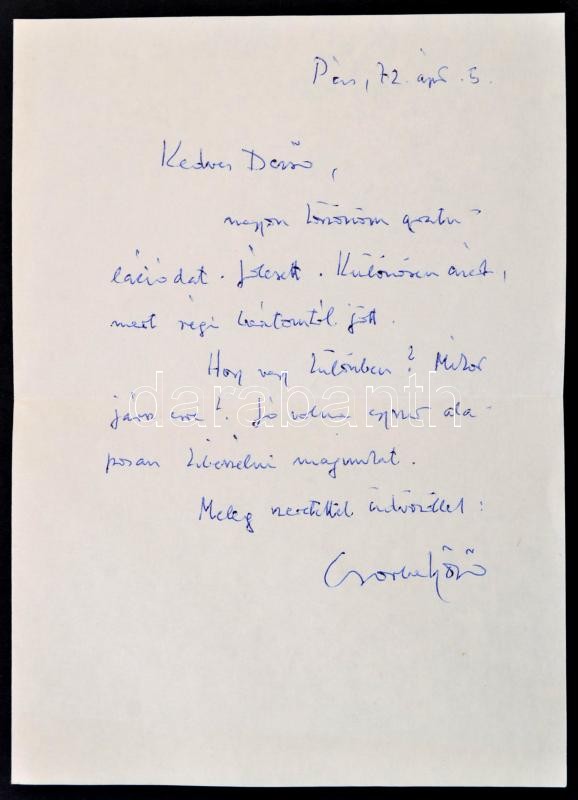 Pécs, 72. ápr. 5.
Kedves Dezső,
nagyon köszönöm gratu-
lációdat. Jólesett. Különösen azért,
mert régi barátomtól jött.
Hogy vagy különben? Mikor
jársz erre? Jó volna egyszer ala-
posan kibeszélni magunkat.
Meleg szeretettel üdvözöllek:
Csorba Győző
darabanth